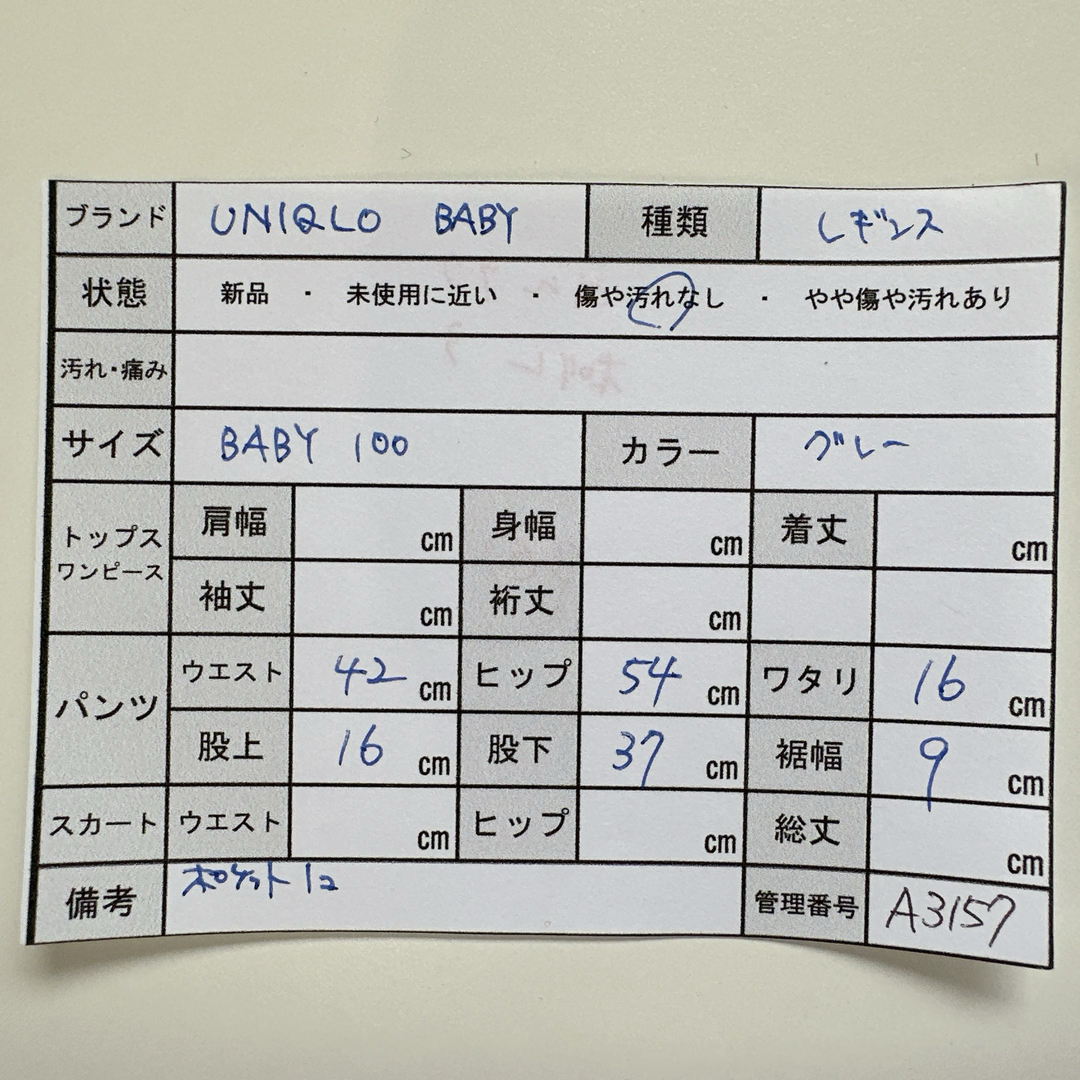 ブランド UNIQLO BABY 種類 レギンス
状態 新品 ・ 未使用に近い ・ 傷や汚れなし ・ やや傷や汚れあり
汚れ・痛み
サイズ BABY 100 カラー グレー
トップス ワンピース 肩幅 cm 身幅 cm 着丈 cm
袖丈 cm 裄丈 cm
パンツ ウエスト 42 cm ヒップ 54 cm ワタリ 16 cm
股上 16 cm 股下 37 cm 裾幅 9 cm
スカート ウエスト cm ヒップ cm 総丈 cm
備考 ポケット1コ 管理番号 A3157